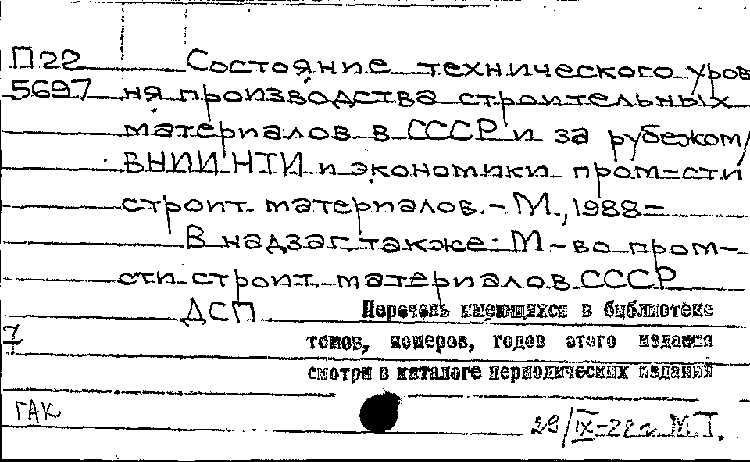 П22 Состояние технического уров
5697 ня производства строительных
материалов в СССР и за рубежом/
ВНИИНТИ и экономики пром-сти
строит. материалов. - М., 1988-
В надзаг. также: М-во пром-
сти строит. материалов СССР
ДСП Перечень имеющихся в библиотеке
7 томов, номеров, годов этого издания
смотри в каталоге периодических изданий
ГАК
/IX- М.Т.